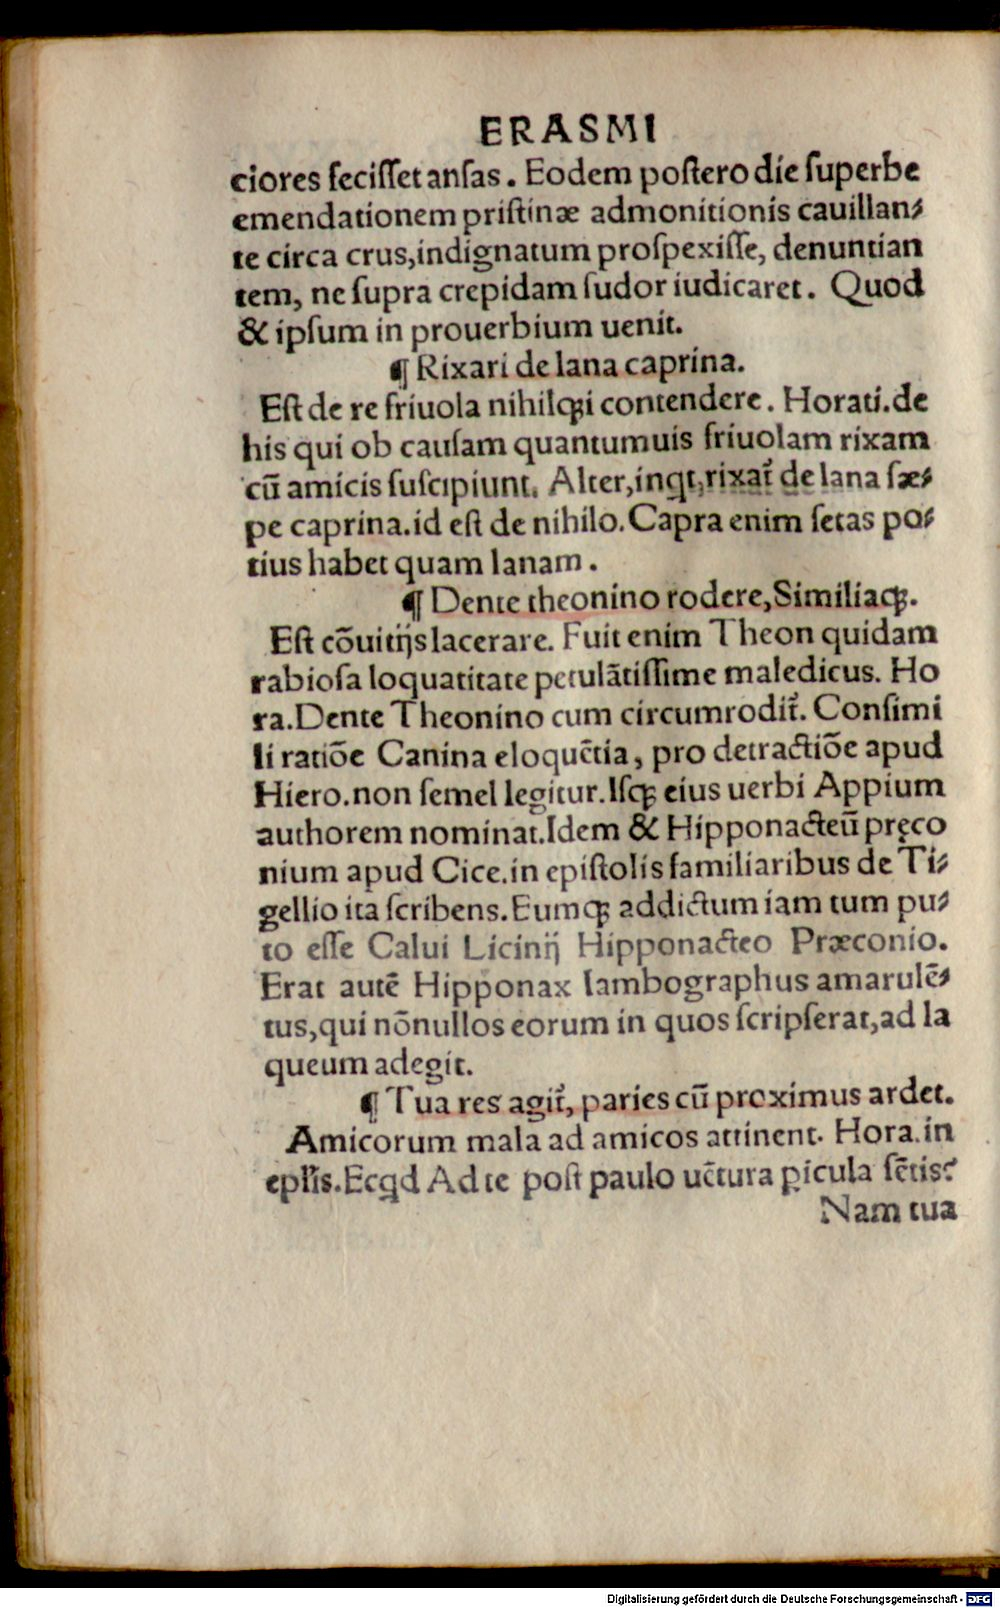 ERASMI
ciores feciſſet anſas. Eodem poſtero die ſuperbe
emendationem priſtinæ admonitionis cauillan⸗
te circa crus,indignatum proſpexiſſe, denuntian
tem, ne ſupra crepidam ſudor iudicaret. Quod
& ipſum in prouerbium uenit.
¶ Rixari de lana caprina.
Eſt de re friuola nihiliqꝫ contendere. Horati.de
his qui ob cauſam quantumuis friuolam rixam
cū amicis ſuſcipiunt. Alter,inqt,rixat᷑ de lana ſæ⸗
pe caprina.id eſt de nihilo.Capra enim ſetas po⸗
tius habet quam lanam.
¶ Dente theonino rodere,Similiaqꝫ.
Eſt cōuitijs lacerare. Fuit enim Theon quidam
rabioſa loquatitate petulātiſſime maledicus. Ho
ra.Dente Theonino cum circumrodit᷑. Conſimi
li ratiōe Canina eloquētia, pro detractiōe apud
Hiero.non ſemel legitur.Iſqꝫ eius uerbi Appium
authorem nominat.Idem & Hipponacteū pręco
nium apud Cice.in epiſtolis familiaribus de Ti⸗
gellio ita ſcribens.Eumqꝫ addictum iam tum pu⸗
to eſſe Calui Licinij Hipponacteo Præconio.
Erat autē Hipponax Iambographus amarulē⸗
tus,qui nōnullos eorum in quos ſcripſerat,ad la
queum adegit.
¶ Tua res agit᷑, paries cū proximus ardet.
Amicorum mala ad amicos attinent. Hora.in
epl̄is.Ecqd Ad te poſt paulo uētura ꝑicula ſētis?
Nam tua
Digitalisierung gefördert durch die Deutsche Forschungsgemeinschaft - DFG